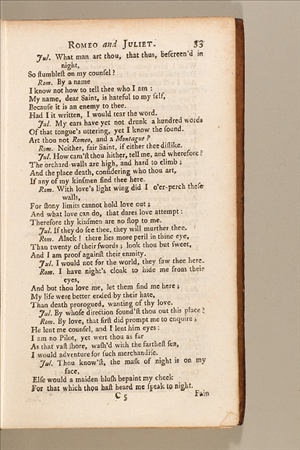 ROMEO and JULIET. 53
Jul. What man art thou, that thus, bescreen'd in
night,
So stumblest on my counsel?
Rom. By a name
I know not how to tell thee who I am:
My name, dear Saint, is hateful to my self,
Because it is an enemy to thee.
Had I it written, I would tear the word.
Jul. My ears have yet not drunk a hundred words
Of that tongue's uttering, yet I know the sound.
Art thou not Romeo, and a Montague?
Rom. Neither, fair Saint, if either thee dislike.
Jul. How cam'st thou hither, tell me, and wherefore?
The orchard walls are high, and hard to climb;
And the place death, considering who thou art,
If any of my kinsmen find thee here.
Rom. With love's light wing did I o'er-perch these
walls,
For stony limits cannot hold love out;
And what love can do, that dares love attempt:
Therefore thy kinsmen are no stop to me.
Jul. If they do see thee, they will murther thee.
Rom. Alack! there lies more peril in thine eye,
Than twenty of their swords; look thou but sweet,
And I am proof against their enmity.
Jul. I would not for the world, they saw thee here.
Rom. I have night's cloak to hide me from their
eyes,
And but thou love me, let them find me here;
My life were better ended by their hate,
Than death prorogued, wanting of thy love.
Jul. By whose direction found'st thou out this place?
Rom. By love, that first did prompt me to enquire;
He lent me counsel, and I lent him eyes:
I am no Pilot, yet wert thou as far
As that vast shore, wash'd with the farthest sea,
I would adventure for such merchandise.
Jul. Thou know'st, the mask of night is on my
face,
Else would a maiden blush bepaint my cheek
For that which thou hast heard me speak to night.
C 5 Fain